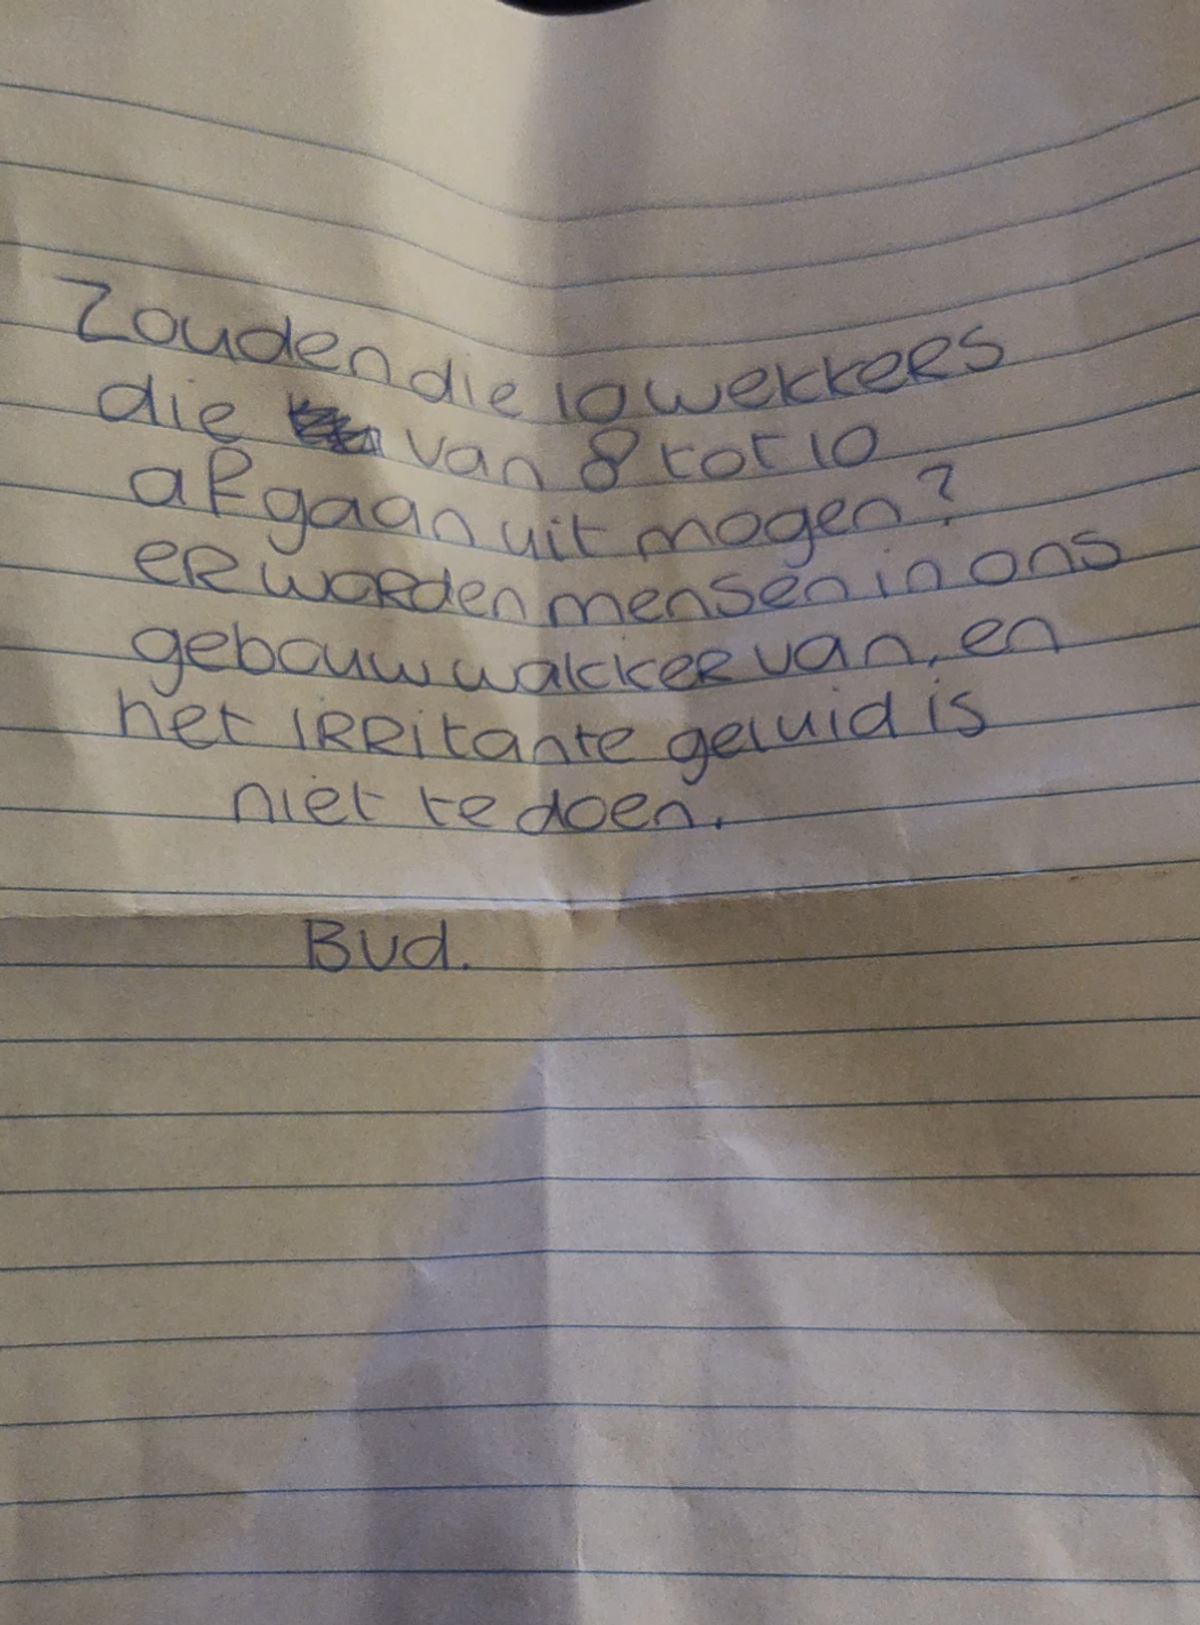 Zouden die 10 wekkers
die van 8 tot 10
afgaan uit mogen?
er worden mensen in ons
gebouw wakker van, en
het irritante geluid is
niet te doen.
Bud.